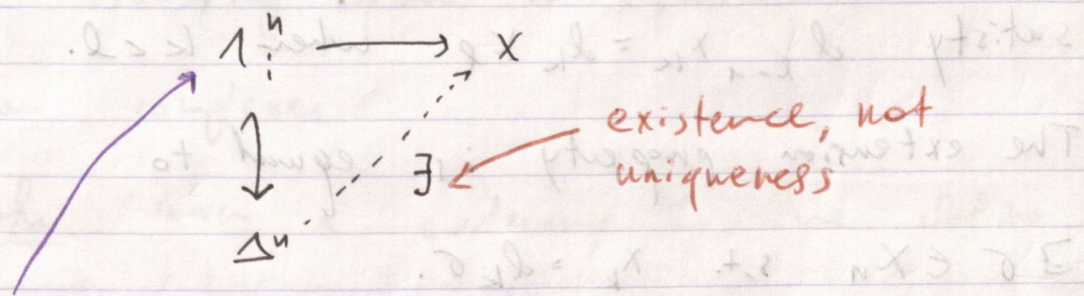 Λⁿᵢ → X
∃
existence, not
uniqueness
Δⁿ